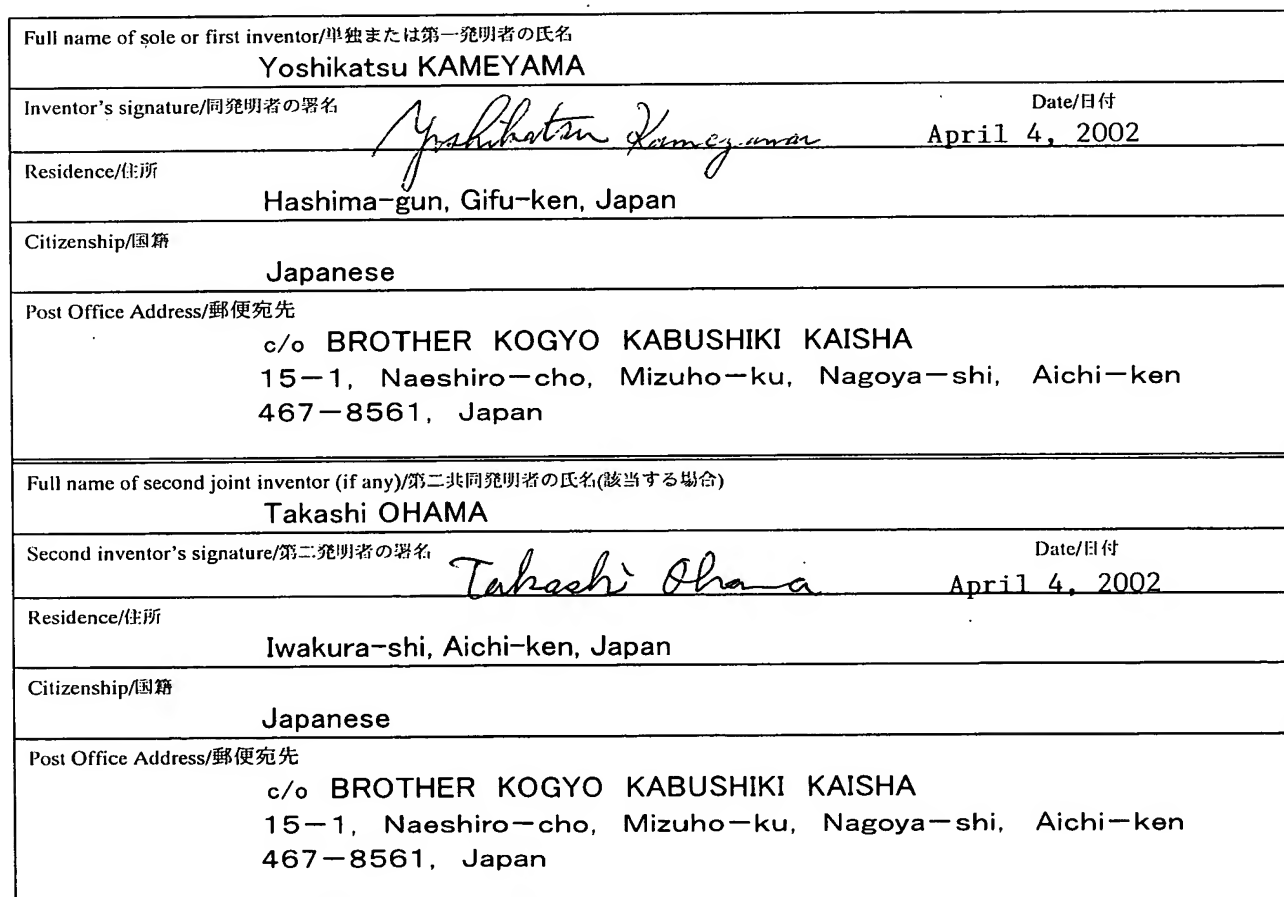 Full name of sole or first inventor/単独または第一発明者の氏名
Yoshikatsu KAMEYAMA
Inventor's signature/同発明者の署名 Date/日付
Yoshikatsu Kameyama April 4, 2002
Residence/住所
Hashima-gun, Gifu-ken, Japan
Citizenship/国籍
Japanese
Post Office Address/郵便宛先
c/o BROTHER KOGYO KABUSHIKI KAISHA
15-1, Naeshiro-cho, Mizuho-ku, Nagoya-shi, Aichi-ken
467-8561, Japan
Full name of second joint inventor (if any)/第二共同発明者の氏名(該当する場合)
Takashi OHAMA
Second inventor's signature/第二発明者の署名 Date/日付
Takashi Ohama April 4, 2002
Residence/住所
Iwakura-shi, Aichi-ken, Japan
Citizenship/国籍
Japanese
Post Office Address/郵便宛先
c/o BROTHER KOGYO KABUSHIKI KAISHA
15-1, Naeshiro-cho, Mizuho-ku, Nagoya-shi, Aichi-ken
467-8561, Japan